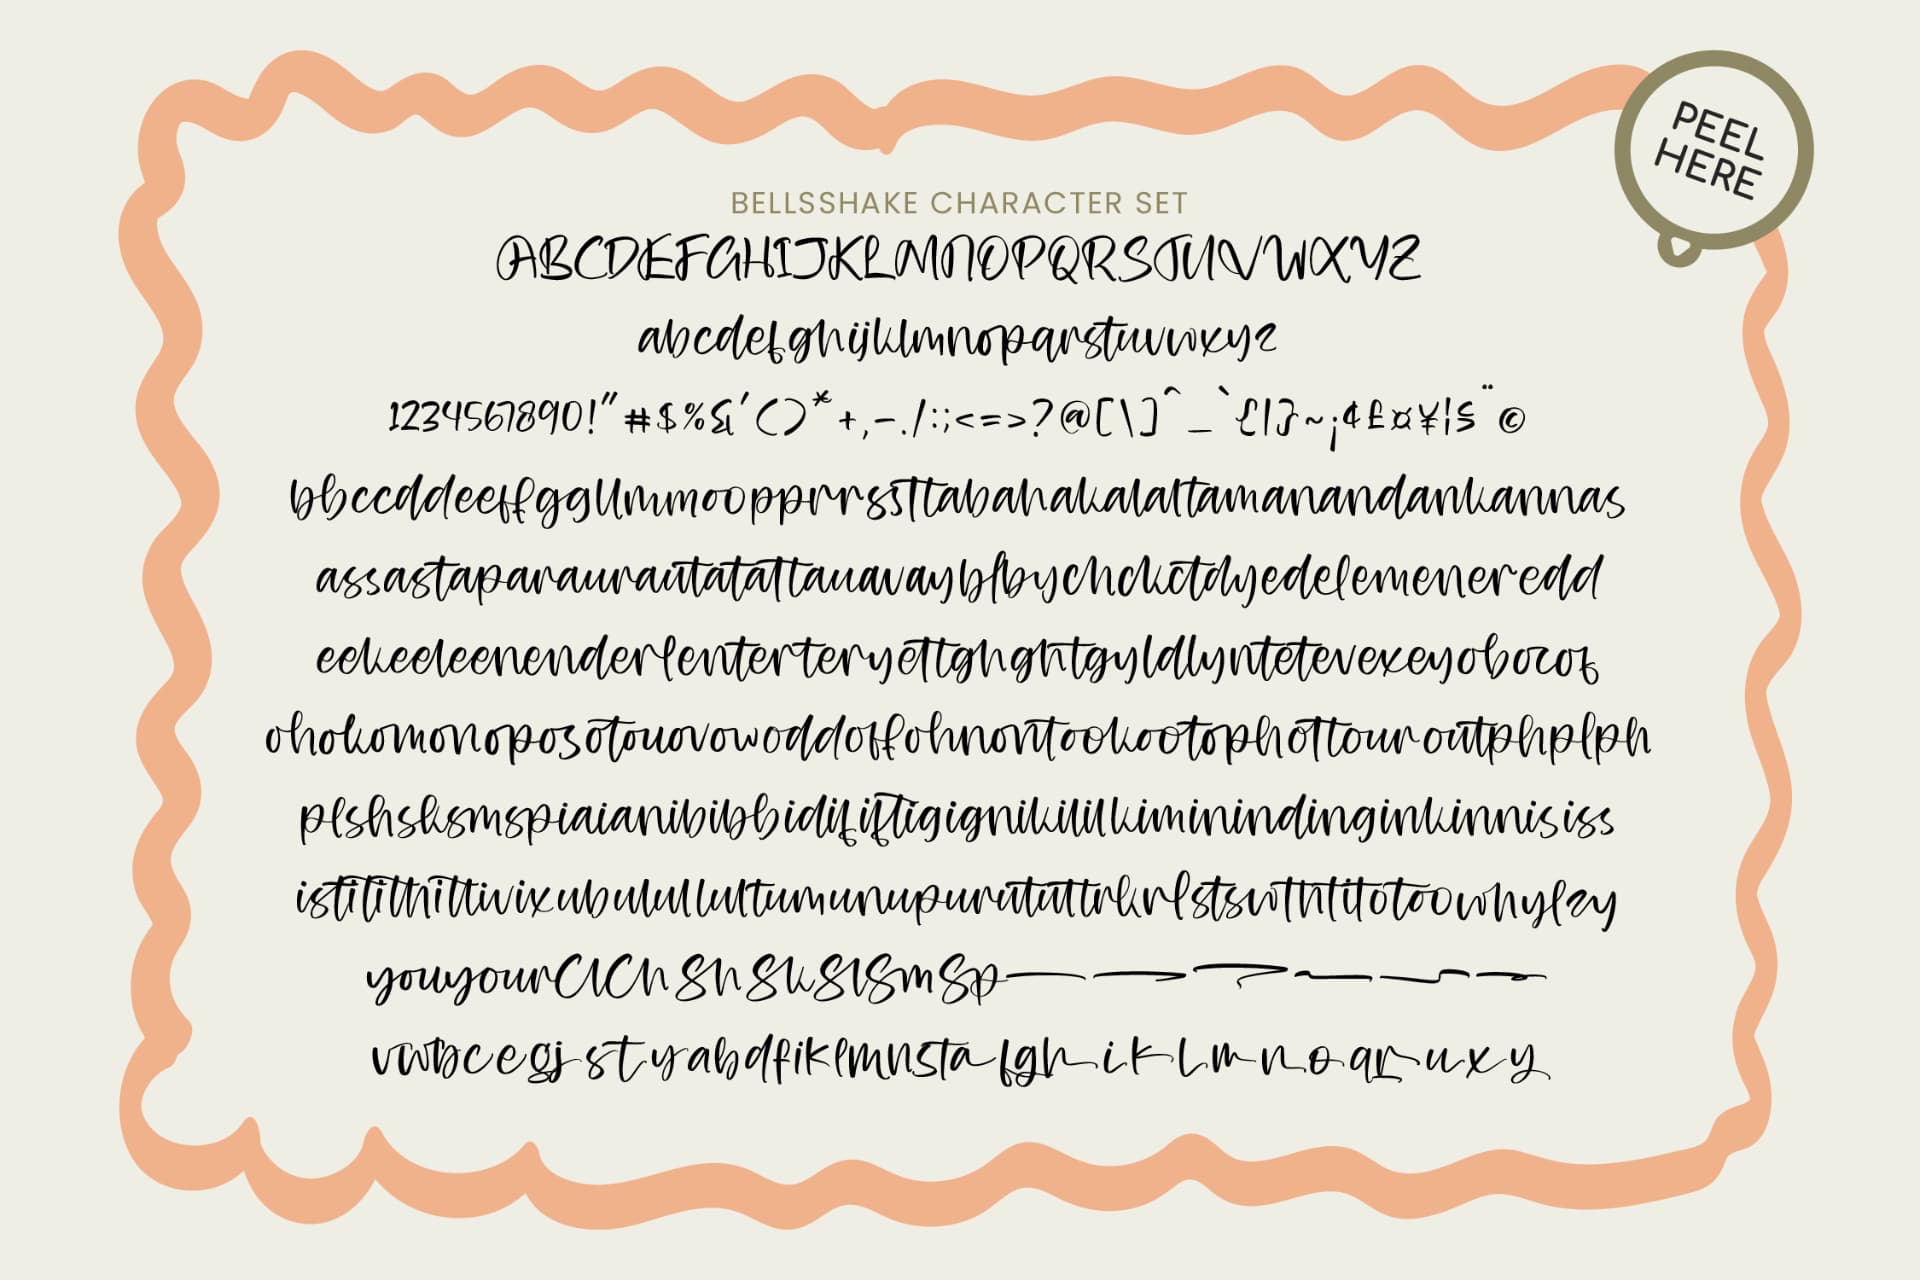 PEEL
HERE
BELLSSHAKE CHARACTER SET
ABCDEFGHIJKLMNOPQRSTUVWXYZ
abcdefghijklmnopqrstuvwxyz
1234567890!"#$%&'()*+,-./:;<=>?@[\]^_`{|}~¡¢£¤¥¦§¨©
bbccddeeffggllmmoopprrssttabahakalaltamanandankannas
assastaparaurautatattauavaybflbychckctdyedelemeneredd
eekeeleenenderlenterteryettghghtgyldlyntetevexeyobocof
ohokomonoposotouovowoddoffohnontookootophottouroutphplph
plshskmspiaianibibbidififtigignikililkiminindinginkinnisiss
istitithittivixubulullultumunupurututtrkrlstswthtitotoowhylzy
youyourClChShSkSlSmSp
vwbcegjstyabdfiklmnstafghiklmnoqruxy